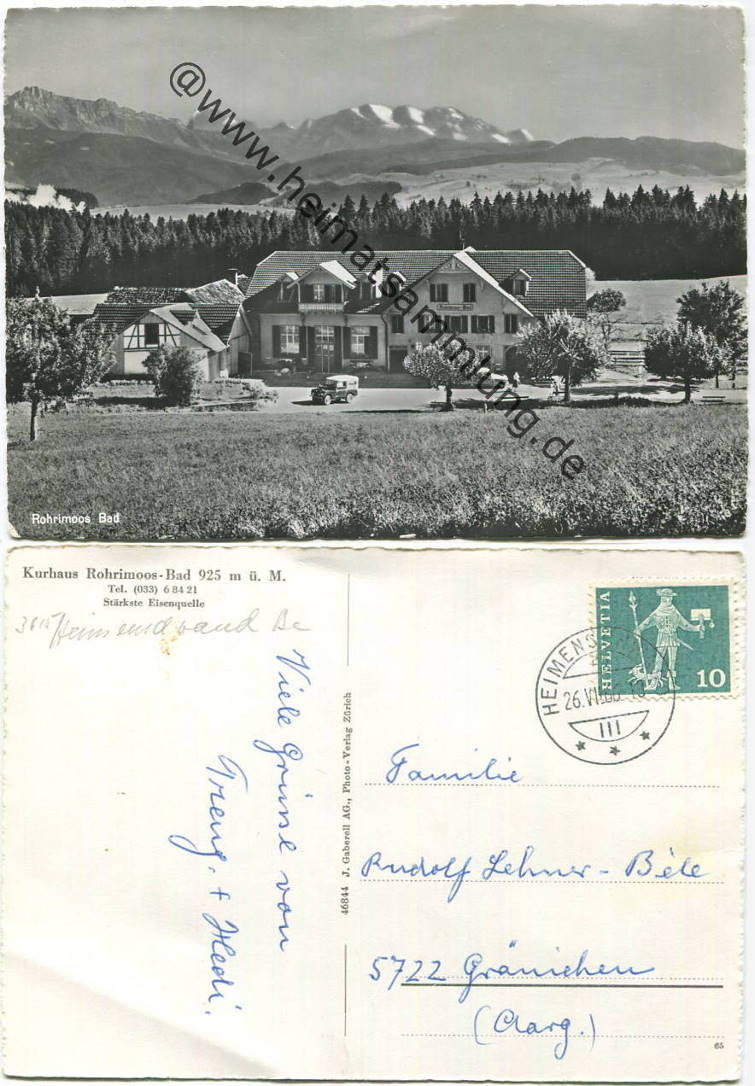 @www.heimatsammlung.de
Rohrimoos Bad
Kurhaus Rohrimoos-Bad 925 m ü. M.
Tel. (033) 6 84 21
Stärkste Eisenquelle
3615 Heimenschwand Be
Viele Grüsse von
+ Hedi.
46844 J. Gaberell AG., Photo-Verlag Zürich
HELVETIA
10
26.VII.66
III
Familie
Rudolf Lehner-
5722 Gränichen
(Aarg.)
65